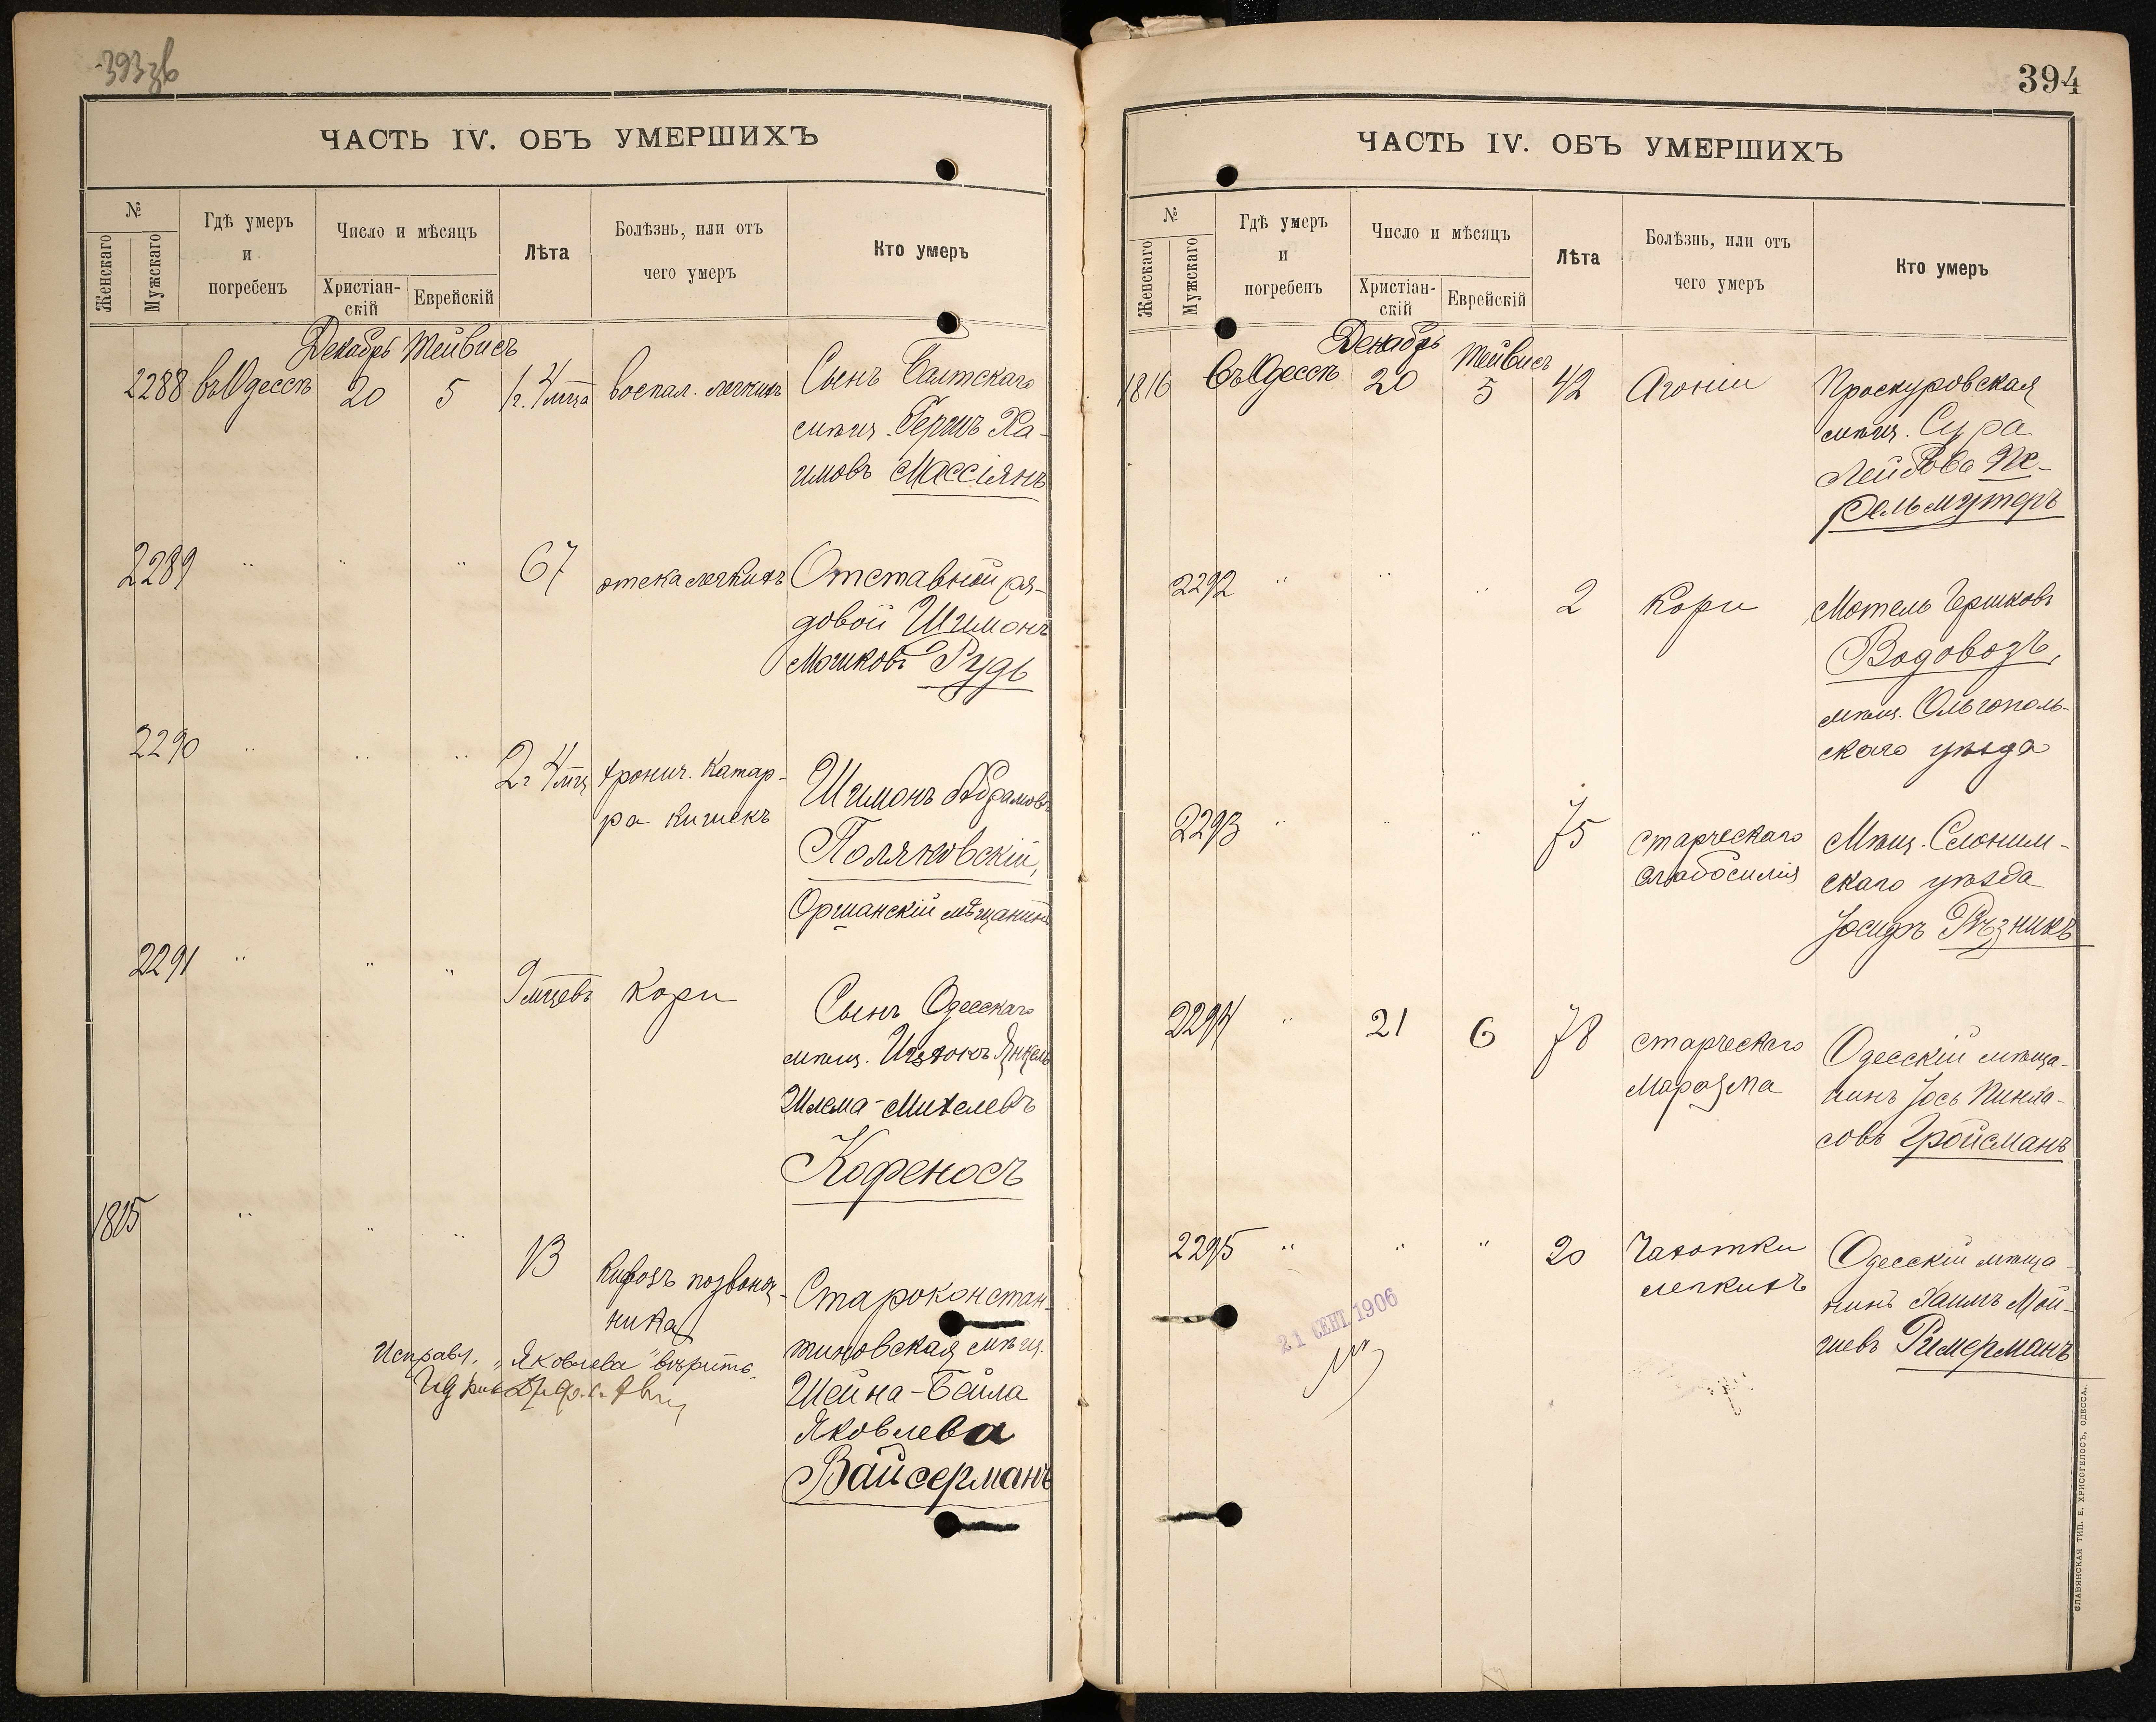 393зв
ЧАСТЬ IV. ОБЪ УМЕРШИХЪ
№
Женскаго
Мужскаго
Гдѣ умеръ
и
погребенъ
Число и мѣсяцъ
Христіан-
скій
Еврейскій
Лѣта
Болѣзнь, или отъ
чего умеръ
Кто умеръ
Декабрь Тейвисъ
2288 въ Одессѣ 20 5 1 г. 4 мца воспал. легкихъ Сынъ Балтскаго
мѣщ. Гершъ Ха-
имовъ Массіянъ
2289 " " " 67 отека легкихъ Отставной ря-
довой Шимонъ
Мошковъ Рудь
2290 " " " 2 г 4 мц хронич. катар-
ра кишекъ
Шимонъ Абрамовъ
Поляковскій,
Оршанскій мѣщанинъ
2291 " " " 9 мцевъ кори Сынъ Одесскаго
мѣщ. Ицхокъ Янкель
Шлема-Михелевъ
Кофеносъ
1815 " " " 13 Кифозъ позвоноч-
ника
Староконстан-
тиновская мѣщ.
Шейна-Бейла
Яковлева
Вайсерманъ
Исправл. "Яковлева" вѣрить.
394
ЧАСТЬ IV. ОБЪ УМЕРШИХЪ
№
Женскаго
Мужскаго
Гдѣ умеръ
и
погребенъ
Число и мѣсяцъ
Христіан-
скій
Еврейскій
Лѣта
Болѣзнь, или отъ
чего умеръ
Кто умеръ
Декабрь Тейвисъ
1816 Въ Одессѣ 20 5 42 Агоніи Проскуровская
мѣщ. Сура
Лейбова Пе-
рельмутеръ
2292 " " " 2 Кори Мотель Гершковъ
Водовозъ,
мѣщ. Ольгополь-
скаго уѣзда
2293 " " " 75 старческаго
слабосилія
Мѣщ. Слоним-
скаго уѣзда
Іосифъ Рѣзникъ
2294 " 21 6 78 старческаго
маразма
Одесскій мѣща-
нинъ Іось Пинха-
совъ Гройсманъ
2295 " " " 20 Чахотки
легкихъ
Одесскій мѣща-
нинъ Хаимъ Мой-
шевъ Римерманъ
21 СЕНТ. 1906
СЛАВЯНСКАЯ ТИП. Е. ХРИСОГЕЛОСЪ, ОДЕССА.